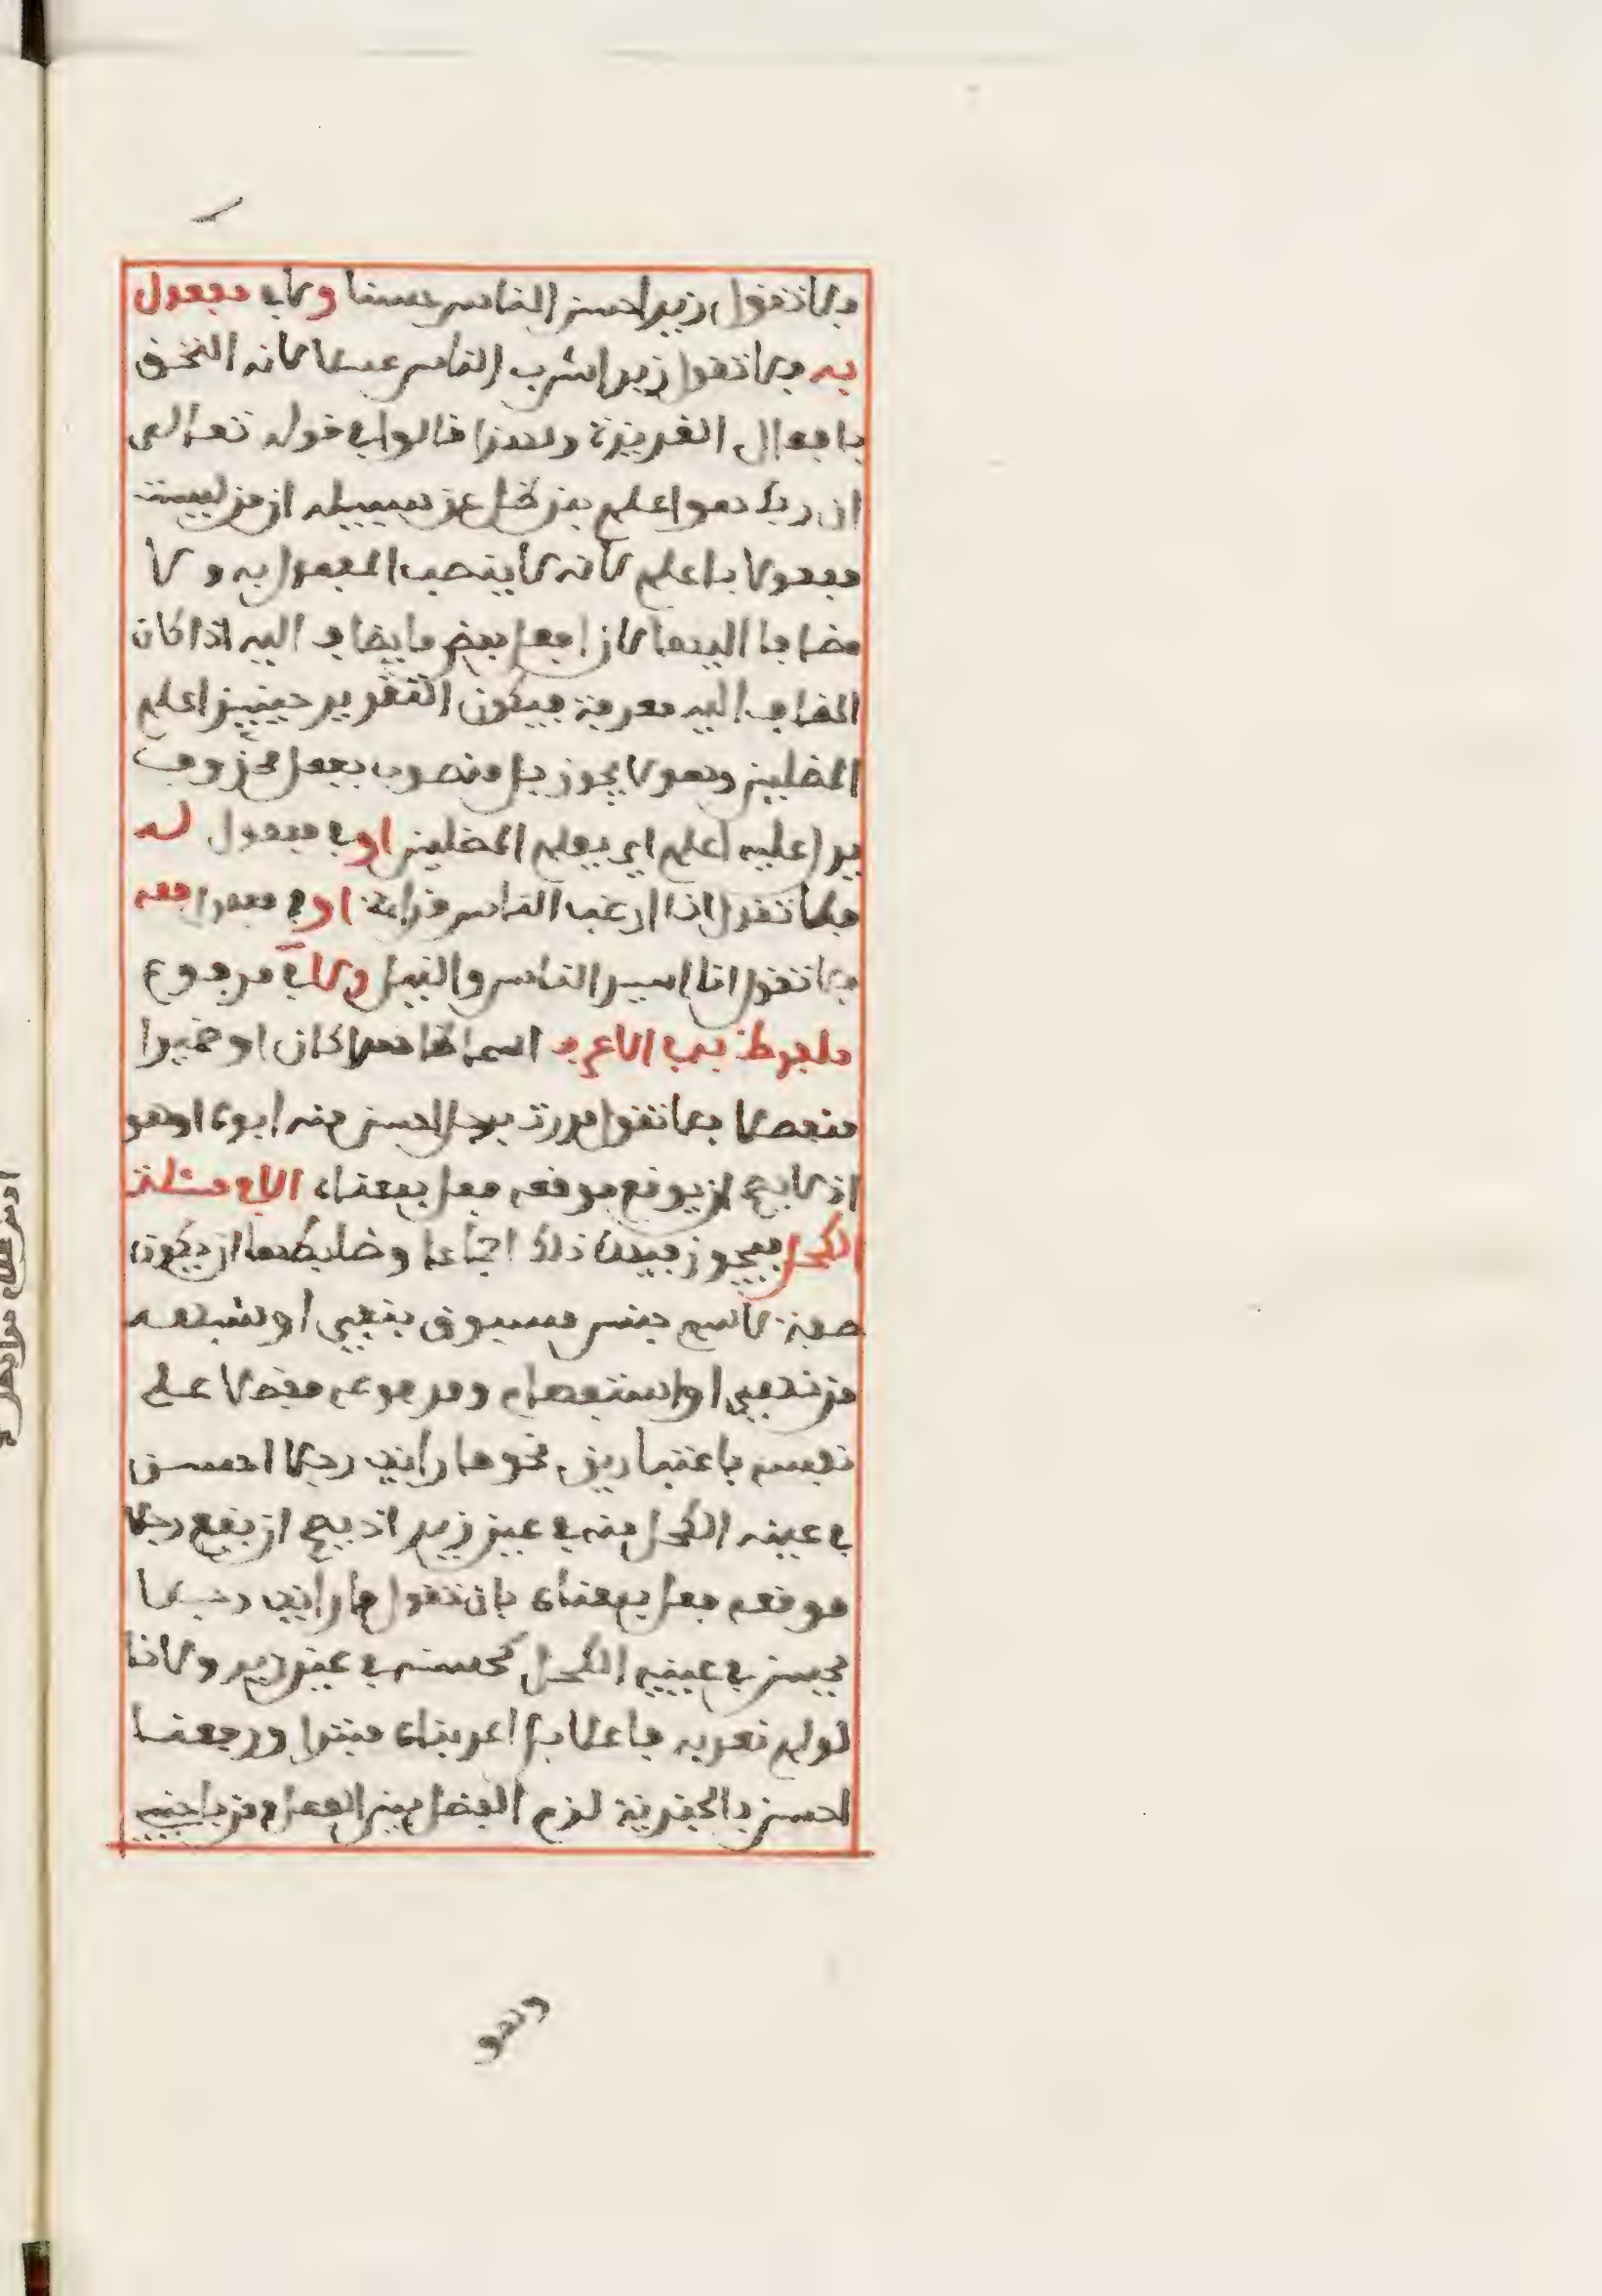 فلا تقول زيد احسن الناس حسنا ولا في مفعول
به فلا تقول زيد اشرب الناس عسلا لانه التحق
بافعال الغريزة ولهذا قالوا في قوله تعالى
ان ربك هو اعلم من يضل عن سبيله ان من ليست
مفعولا باعلم لانه لا ينصب المفعول به ولا
مضافا اليها لان افعل بعض ما يضاف اليه اذا كان
المضاف اليه معرفة فيكون التقدير حينيذ اعلم
المضلين وهو لا يجوز بل منصوب بفعل محذوف
يدل عليه اعلم اي يعلم المضلين او في مفعول له
فلا تقول انا ارغب الناس قراءة او في مفعول معه
فلا تقول انا اسير الناس والنيل ولا في مرفوع
ملفوظ به في الاعرف اسما ظاهرا كان او ضميرا
منفصلا فلا تقول مررت برجل احسن منه ابوه او هو
اذ لا يصح ان يوقع موقعه فعل بمعناه الا في مسئلة
الكحل فيجوز فيها ذلك اجماعا وضابطها ان يكون
صفة لاسم جنس مسبوق بنفي او شبهه
من نهي او استفهام ومرفوعه مفضلا على
نفسه باعتبارين نحو ما رايت رجلا احسن
في عينه الكحل منه في عين زيد اذ يصح ان يقع رجلا
موقعه فعل بمعناه بان تقول ما رايت رجلا
يحسن في عينيه الكحل كحسنه في عين زيد ولانا
لو لم نعربه فاعلا بل اعربناه مبتدا ورفعنا
احسن بالخبرية لزم الفصل بين افعل ومن باجنبي
وهو